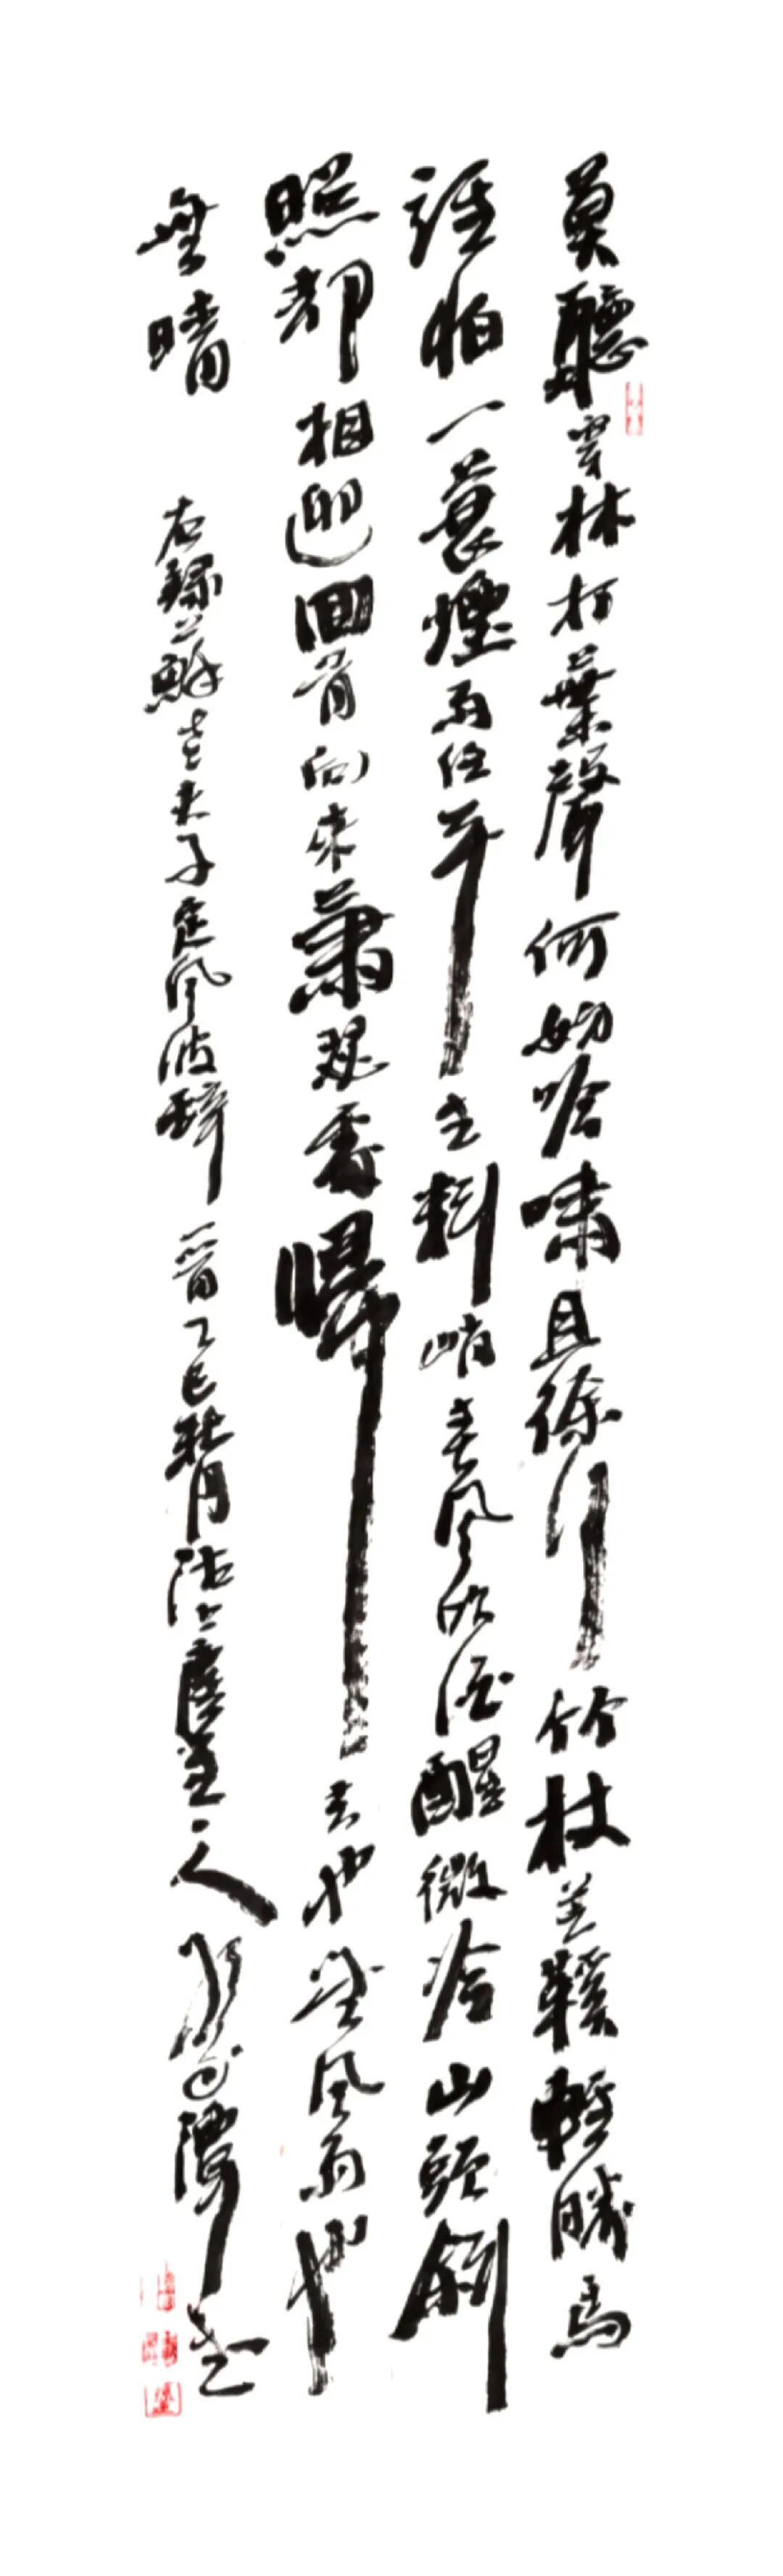 莫聽穿林打葉聲何妨吟嘯且徐行竹杖芒鞋輕勝馬
誰怕一蓑煙雨任平生料峭春風吹酒醒微冷山頭斜
照却相迎回首向來蕭瑟處歸去也無風雨也
無晴 右錄蘇老夫子定風波辭 乙巳 月 人 書